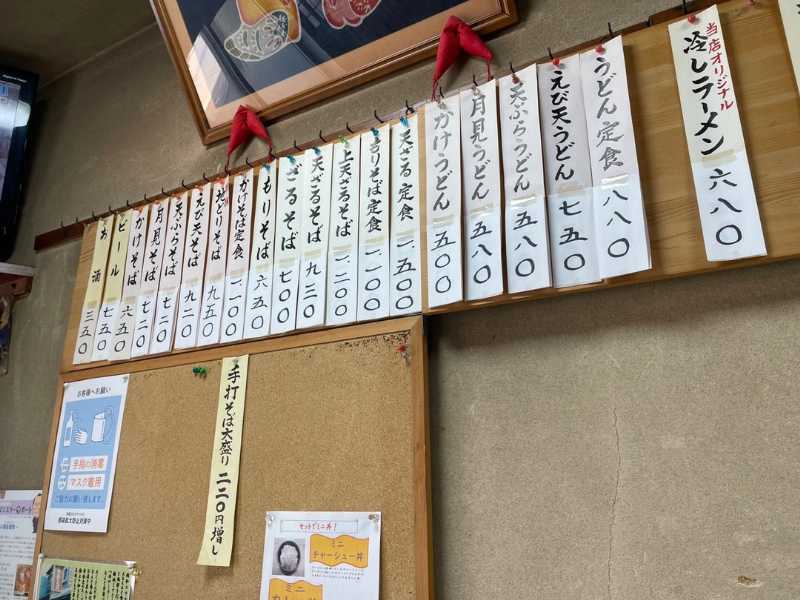 当店オリジナル
冷しラーメン 六八〇
うどん定食 八八〇
えび天うどん 七五〇
天ぷらうどん 五八〇
月見うどん 五八〇
かけうどん 五〇〇
天ざる定食 一、五〇〇
もりそば定食 一、一〇〇
上天ざるそば 一、二〇〇
天ざるそば 九三〇
ざるそば 七〇〇
もりそば 六五〇
かけそば定食 一、一〇〇
そば 九五〇
えび天そば 九二〇
天ぷらそば
月見そば 七二〇
かけそば
ビール 六五〇
お酒 三五〇
手打そば大盛り 二二〇円増し
お客様へお願い
手指の消毒
マスク着用
ご協力お願い致します。
セットでミニ丼!
ミニ
チャーシュー丼
ミニ